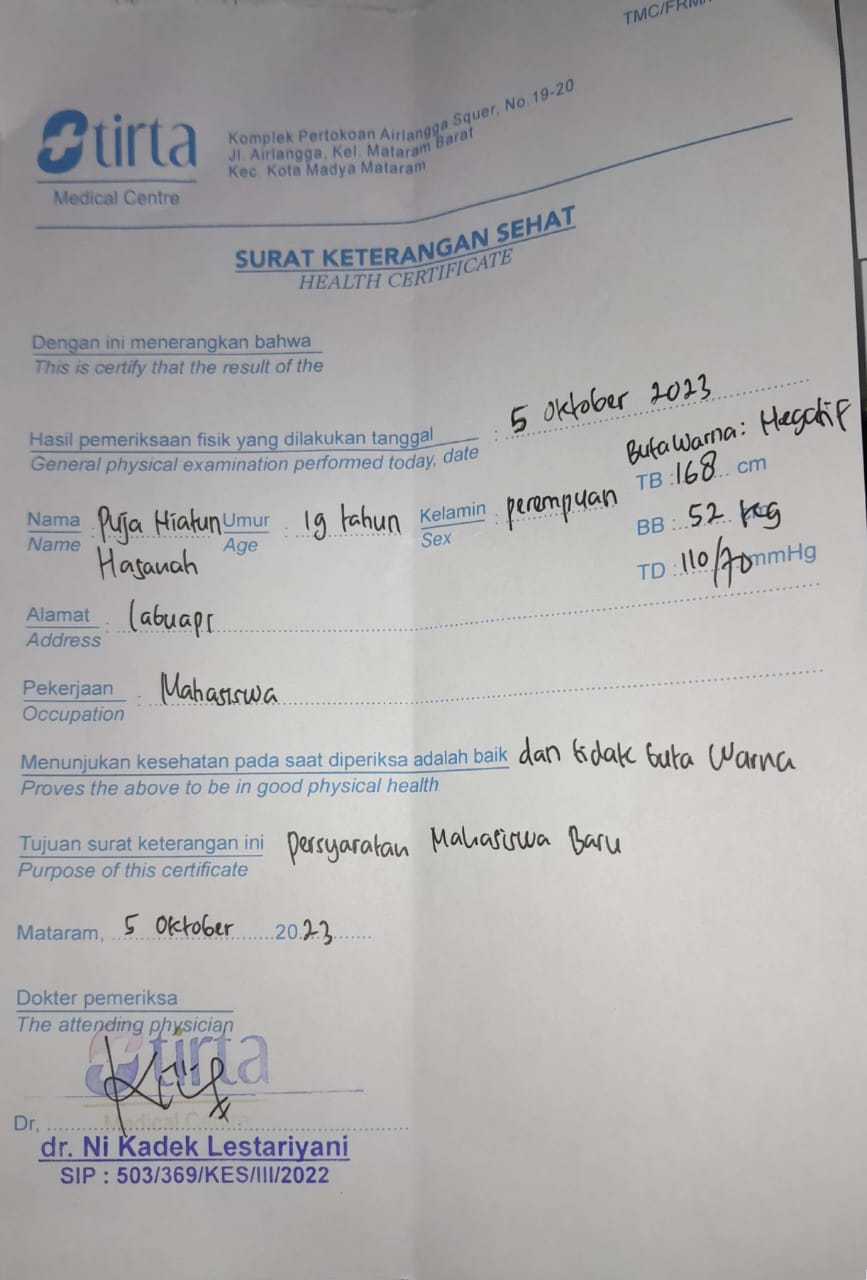 TMC/FRM
tirta
Medical Centre
Komplek Pertokoan Airlangga Squer, No. 19-20
Jl. Airlangga, Kel. Mataram Barat
Kec. Kota Madya Mataram
SURAT KETERANGAN SEHAT
HEALTH CERTIFICATE
Dengan ini menerangkan bahwa
This is certify that the result of the
Hasil pemeriksaan fisik yang dilakukan tanggal : 5 Oktober 2023
General physical examination performed today, date
Buta Warna: Negatif
TB : 168 cm
Nama : Puja Hiatun Umur : 19 tahun Kelamin : perempuan
Name Hasanah Age Sex
BB : 52 kg
TD : 110/70 mmHg
Alamat : Labuapi
Address
Pekerjaan : Mahasiswa
Occupation
Menunjukan kesehatan pada saat diperiksa adalah baik dan tidak buta warna
Proves the above to be in good physical health
Tujuan surat keterangan ini Persyaratan Mahasiswa Baru
Purpose of this certificate
Mataram, 5 Oktober 2023
Dokter pemeriksa
The attending physician
tirta
Medical
Dr,
dr. Ni Kadek Lestariyani
SIP : 503/369/KES/III/2022